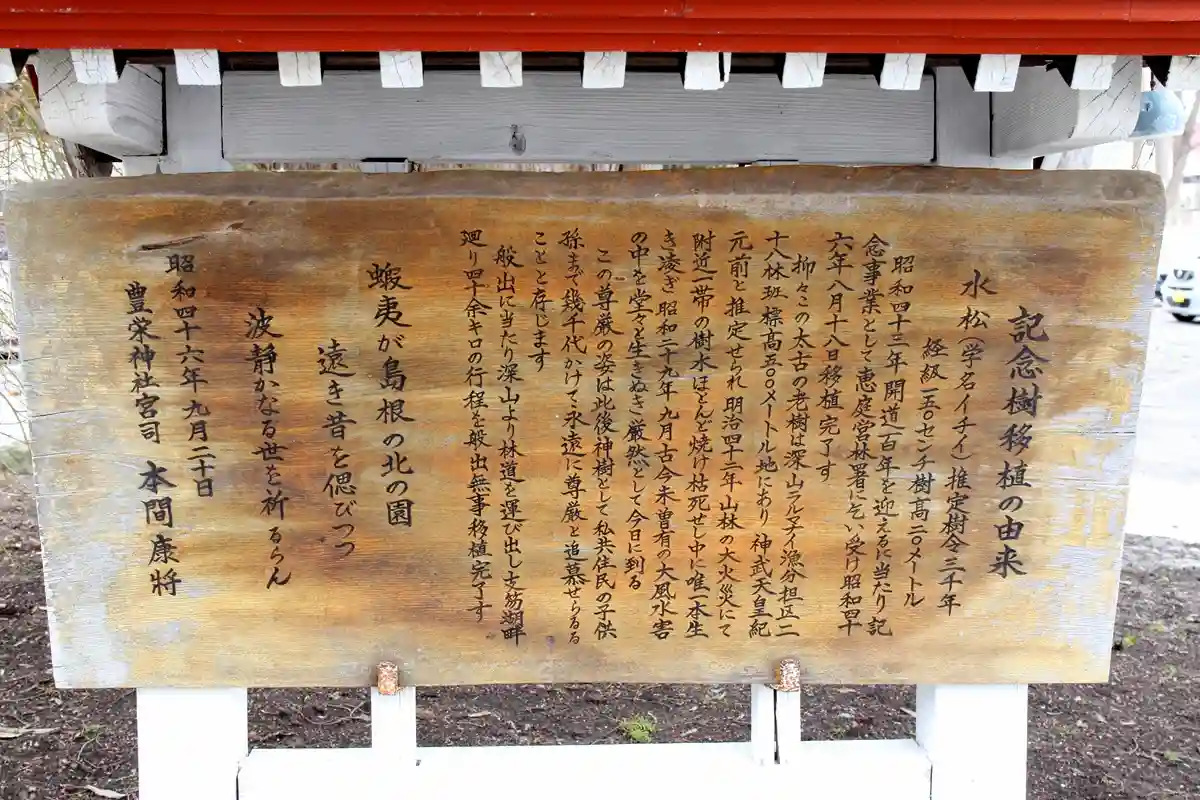 記念樹移植の由来
水松（学名イチイ）推定樹令三千年
経級一五〇センチ樹高二〇メートル
昭和四十三年開道百年を迎えるに当たり記
念事業として恵庭営林署に乞い受け昭和四十
六年八月十八日移植完了す
抑々この太古の老樹は深山ラルマナイ漁分担区二
十八林班標高五〇〇メートル地にあり神武天皇紀
元前と推定せられ明治四十二年山林の大火災にて
附近一帯の樹木ほとんど焼け枯死せし中に唯一本生
き凌ぎ昭和二十九年九月古今未曽有の大風水害
の中を堂々と生きぬき厳然として今日に到る
この尊厳の姿は此後神樹として私共住民の子供
孫まで幾千代かけて永遠に尊厳と追慕せらるる
ことと存じます
般出に当たり深山より林道を運び出し支笏湖畔
廻り四十余キロの行程を般出無事移植完了す
蝦夷が島根の北の園
遠き昔を偲びつつ
波静かなる世を祈るらん
昭和四十六年九月二十日
豊栄神社宮司 本間康將